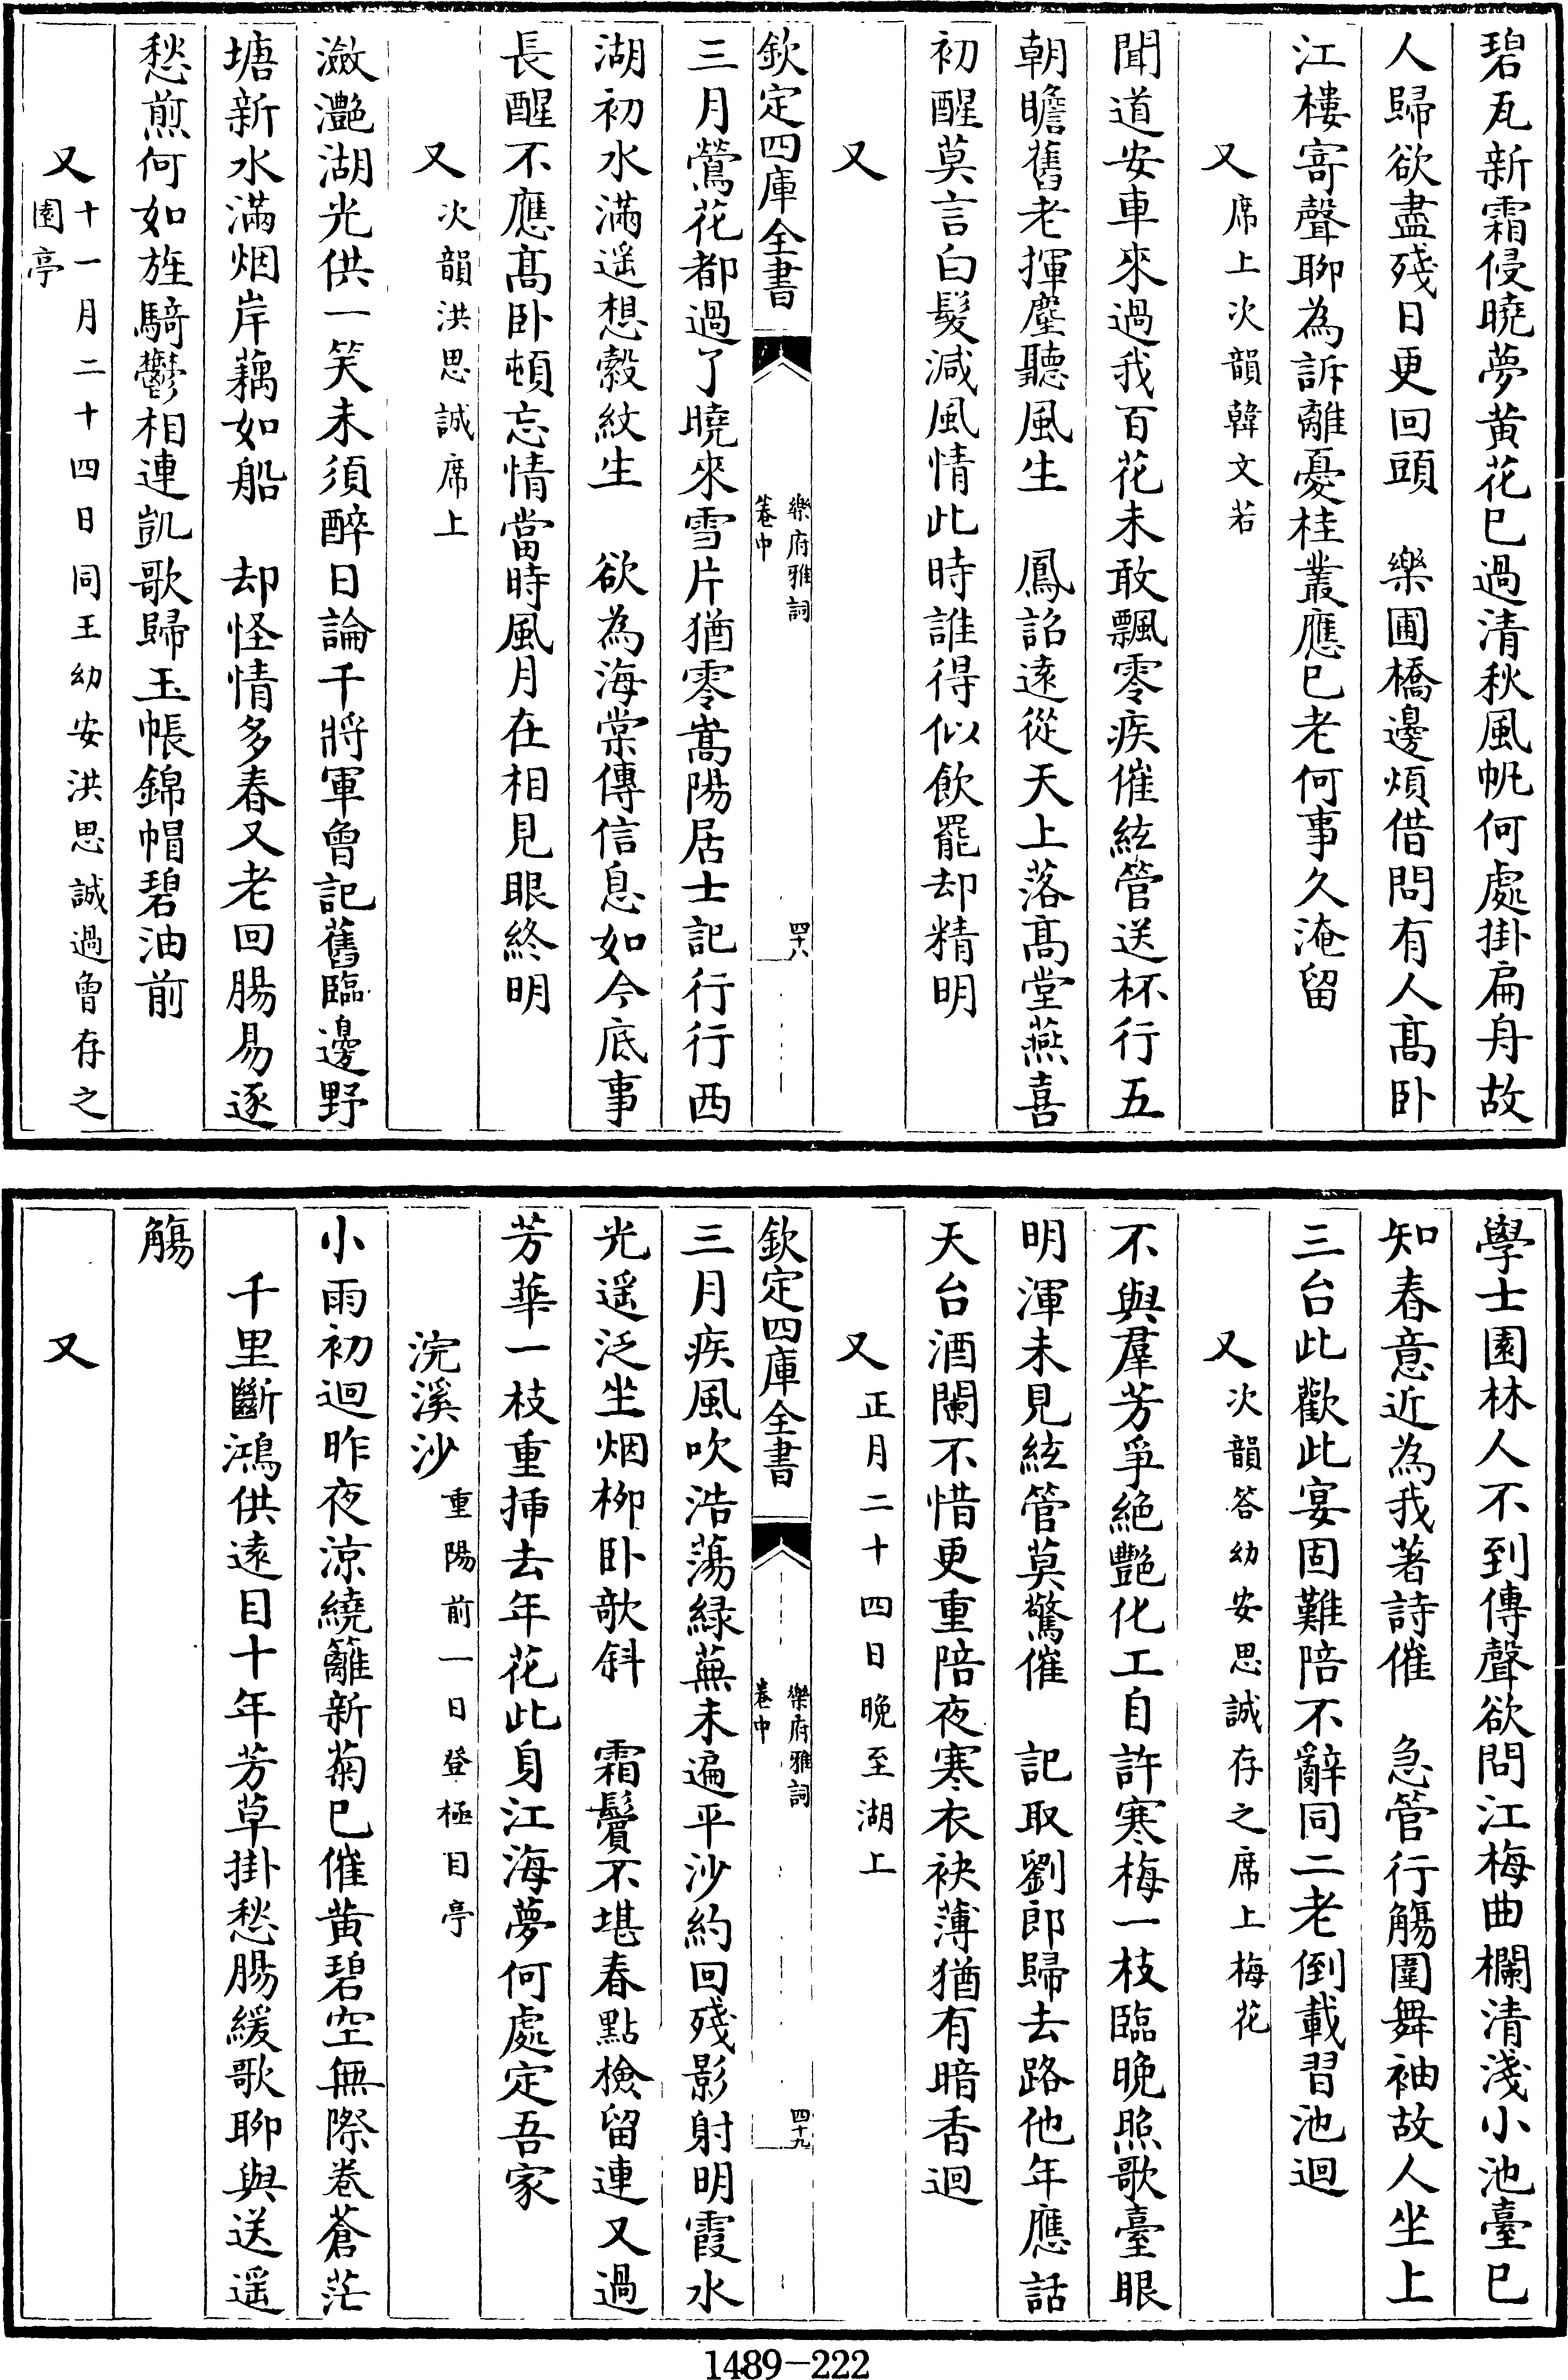 碧瓦新霜侵曉夢黄花已過清秋風帆何處掛扁舟故
人歸欲盡殘日更回頭　樂圃橋邊煩借問有人髙卧
江樓寄聲聊為訴離憂桂叢應已老何事久淹留
又席上次韻韓文若
聞道安車來過我百花未敢飄零疾催絃管送杯行五
朝瞻舊老揮麈聽風生　鳳詔逺從天上落髙堂燕喜
初醒莫言白髮減風情此時誰得似飲罷却精明
又
欽定四庫全書
樂府雅詞
卷中
四十八
三月鶯花都過了曉來雪片猶零嵩陽居士記行行西
湖初水滿遥想縠紋生　欲為海棠傳信息如今底事
長醒不應髙卧頓忘情當時風月在相見眼終明
又次韻洪思誠席上
瀲灧湖光供一笑未須醉日論千將軍曾記舊臨邊野
塘新水滿烟岸藕如船　却怪情多春又老回腸易逐
愁煎何如旌騎鬱相連凱歌歸玉帳錦帽碧油前
又十一月二十四日同王幼安洪思誠過曾存之
園亭
學士園林人不到傳聲欲問江梅曲欄清淺小池臺已
知春意近為我著詩催　急管行觴圍舞袖故人坐上
三台此歡此宴固難陪不辭同二老倒載習池迴
又次韻答幼安思誠存之席上梅花
不與羣芳爭絶艷化工自許寒梅一枝臨晚照歌臺眼
明渾未見絃管莫驚催　記取劉郎歸去路他年應話
天台酒闌不惜更重陪夜寒衣袂薄猶有暗香迴
又正月二十四日晚至湖上
欽定四庫全書
樂府雅詞
卷中
四十九
三月疾風吹浩蕩緑蕪未遍平沙約回殘影射明霞水
光遥泛坐烟柳卧欹斜　霜鬢不堪春點檢留連又過
芳華一枝重挿去年花此身江海夢何處定吾家
浣溪沙重陽前一日登極目亭
小雨初迴昨夜涼繞籬新菊已催黄碧空無際卷蒼茫
千里斷鴻供逺目十年芳草掛愁腸緩歌聊與送遥
觴
又
1489-222